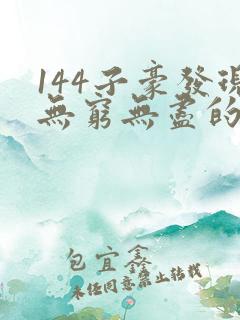 144子豪發現
無窮無盡的
包宜鑫
未經同意禁止轉載